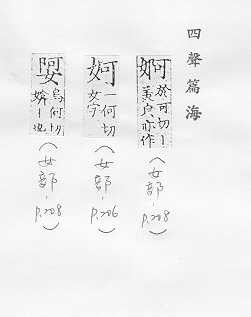 四聲篇海
婀 於可切丨
美皃亦作
(女部-
P.208)
妸 一何切
女字
(女部-
P.206)
娿 烏何切
媕丨也
(女部-
P.208)